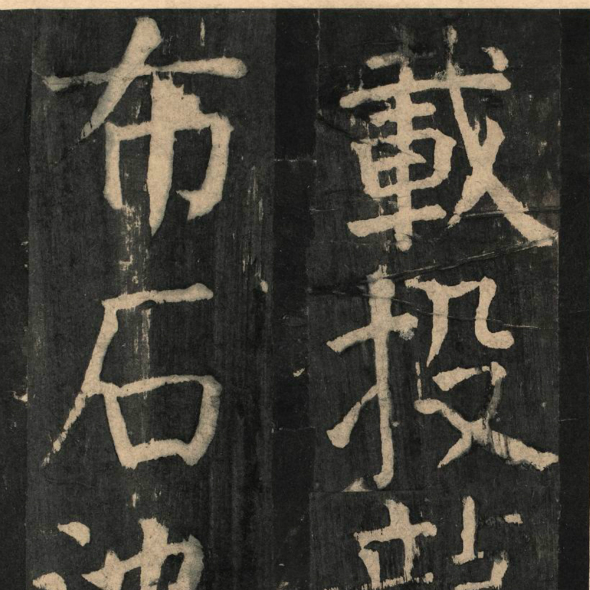 載投
布石